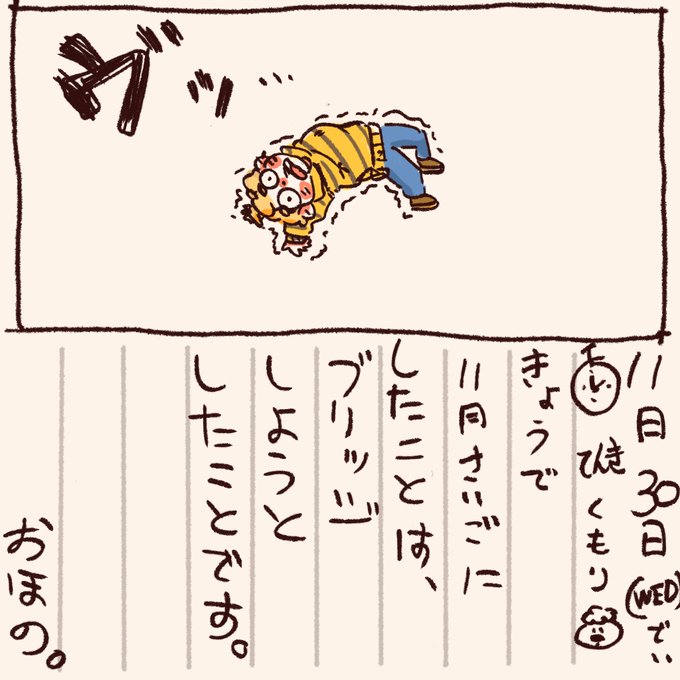 グッ…
11月30日(WED)でぃ
てんき くもり
きょうで
11月さいごに
したことは、
ブリッジ
しようと
したことです。
おほの。